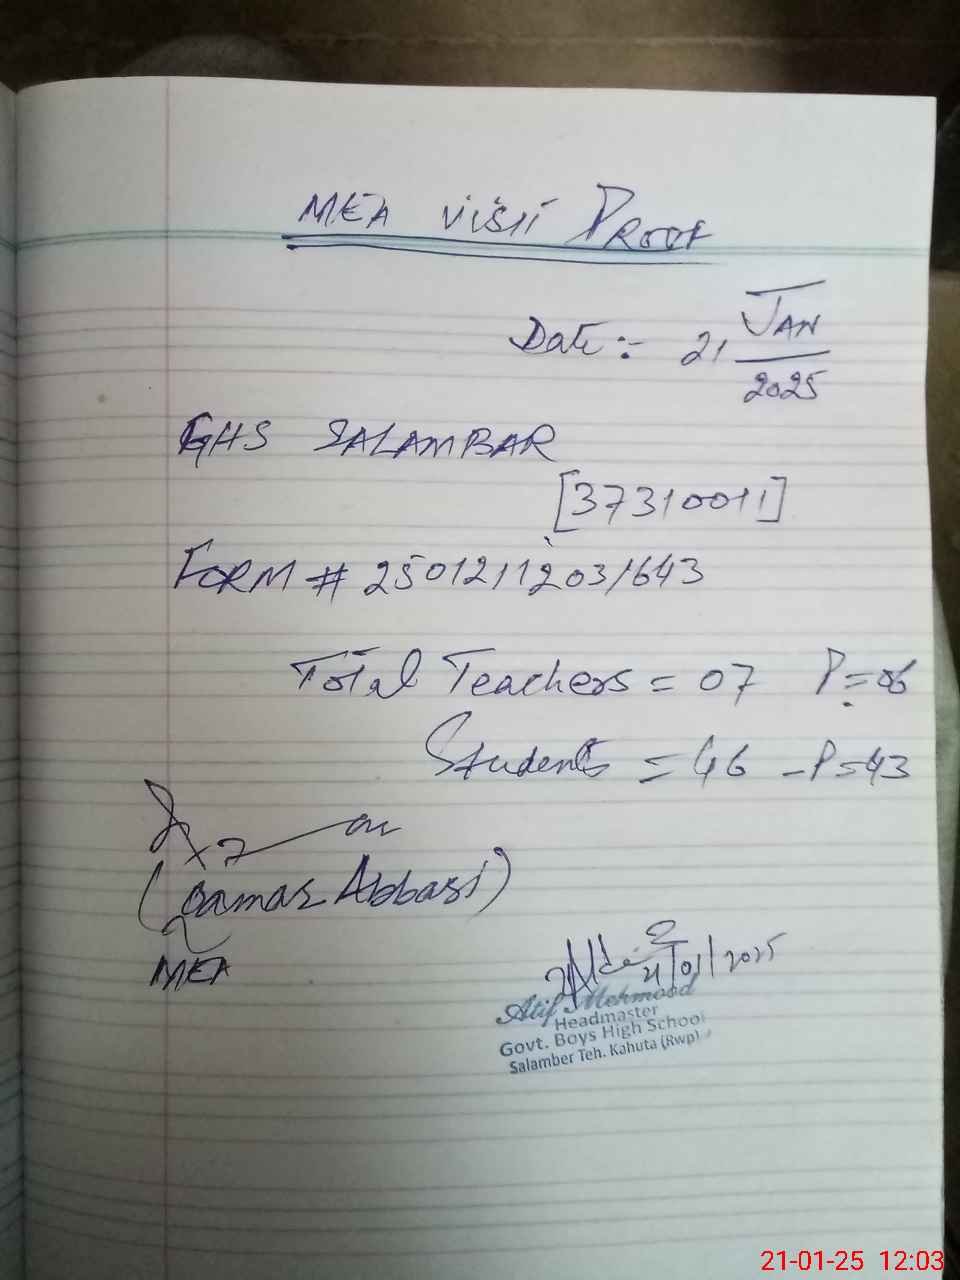 MEA VISIT PROOF
Date:- 21 JAN
2025
GHS SALAMBAR
[37310011]
FORM # 25012112031643
Total Teachers = 07 P=06
Students = 46 - P=43
(Qamar Abbasi)
MEA
21/01/2025
Atif Mehmood
Headmaster
Govt. Boys High School
Salamber Teh. Kahuta (Rwp)
21-01-25 12:03